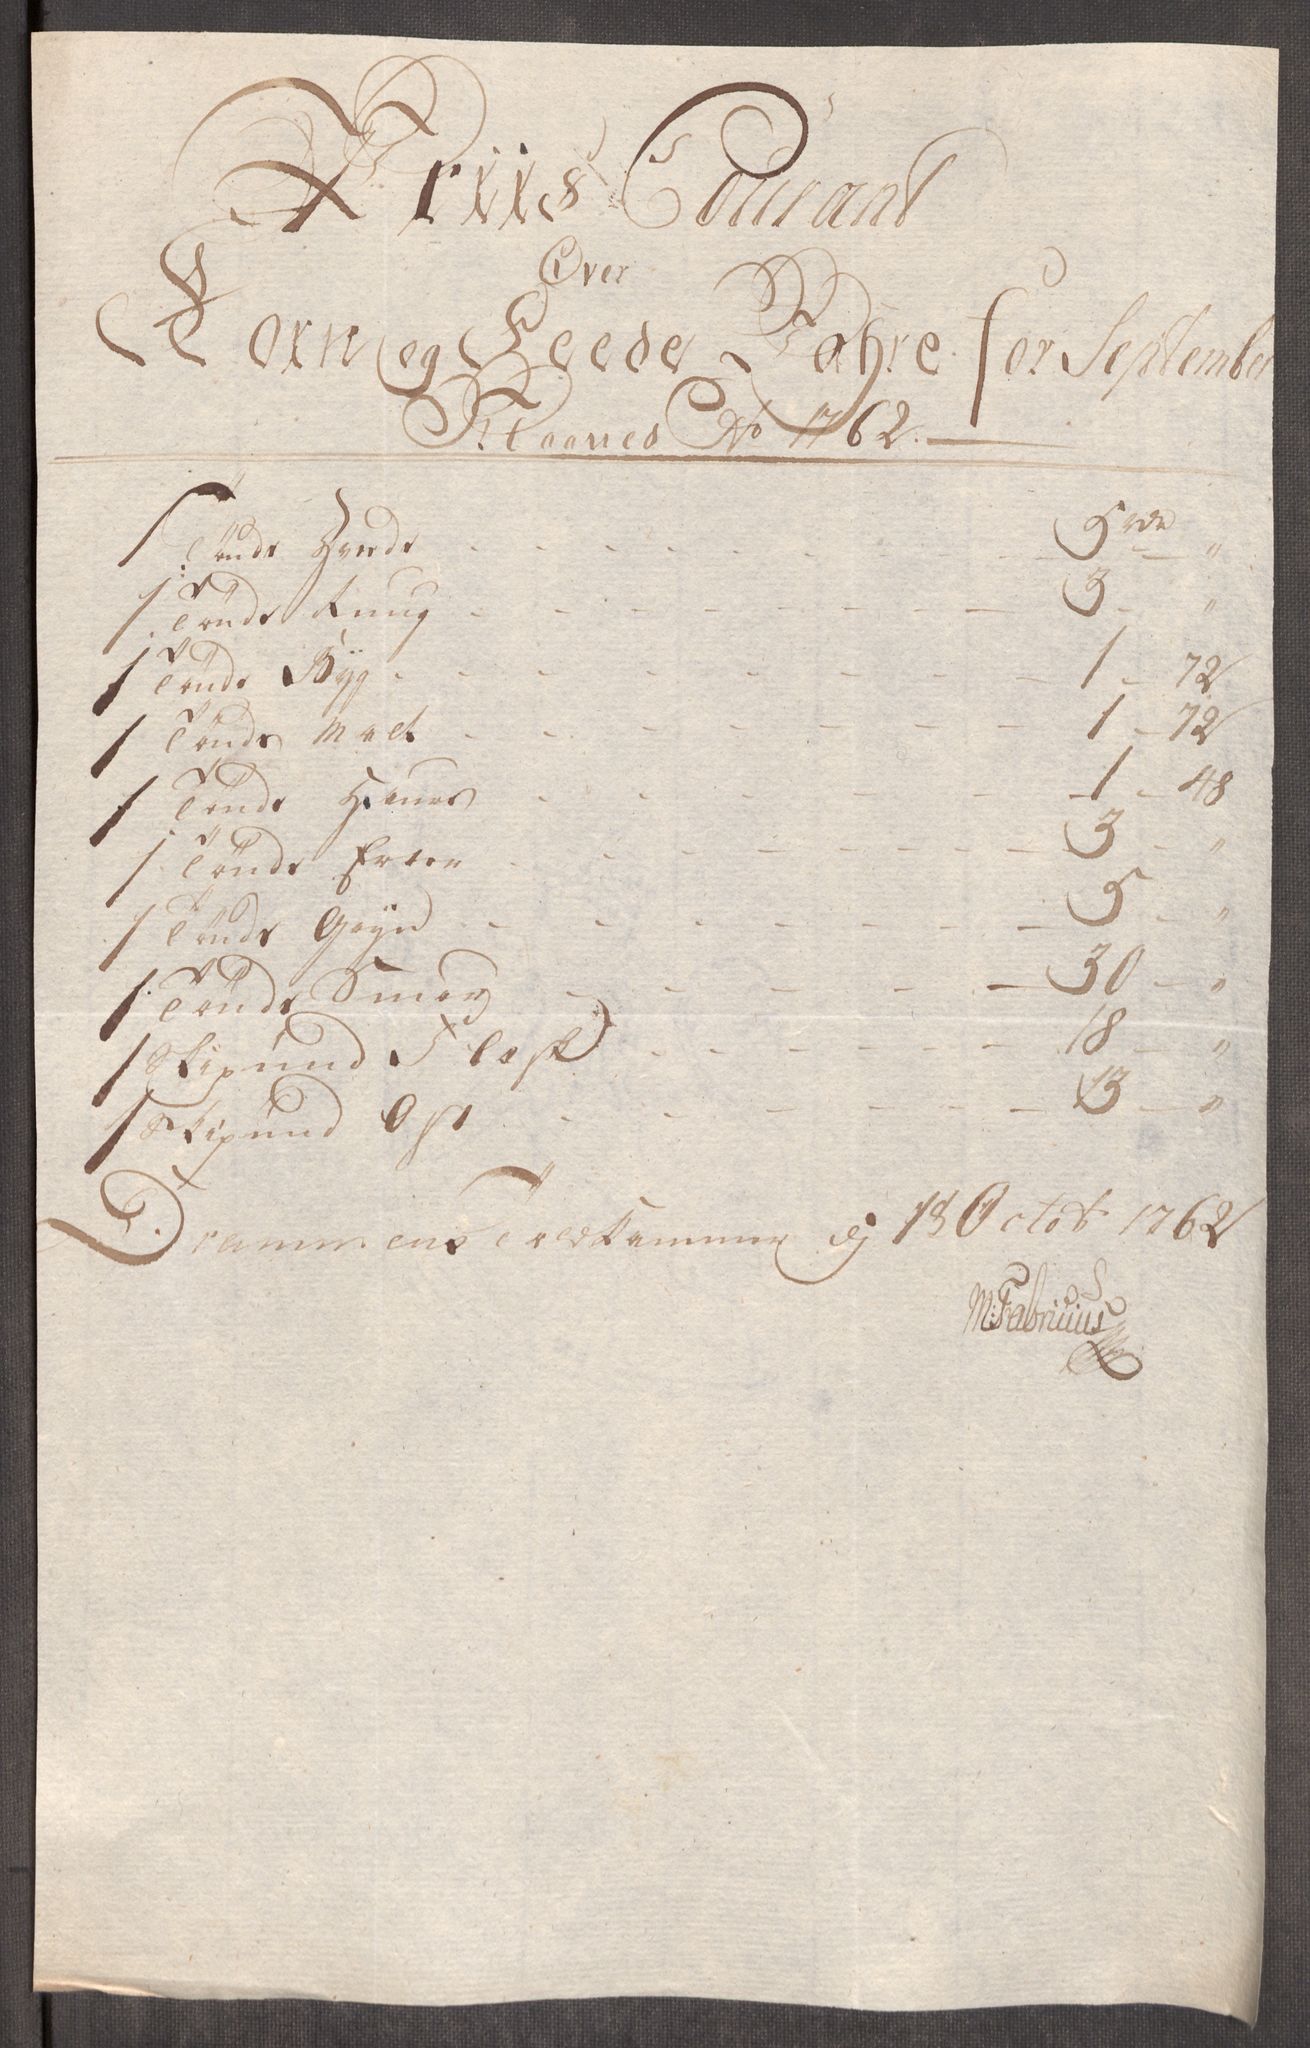 Priis Courant
Over
Korn og Feede Vahre for September
Maaned Ao 1762.
1 Tönde Hvede - - - 5 rdr "
1 Tönde Ruug - - - 3 - "
1 Tönde Byg - - - 1 - 72
1 Tönde Malt - - - 1 - 72
1 Tönde Havre - - - 1 - 48
1 Tönde Erter - - - 3 - "
1 Tönde Gryn - - - 5 - "
1 Tönde Smör - - - 30 - "
1 Skipund Flesk - - - 18 - "
1 Skipund Ost - - - 13 - "
Drammens Toldkammer dj 1st Octobr 1762
M: Fabricius